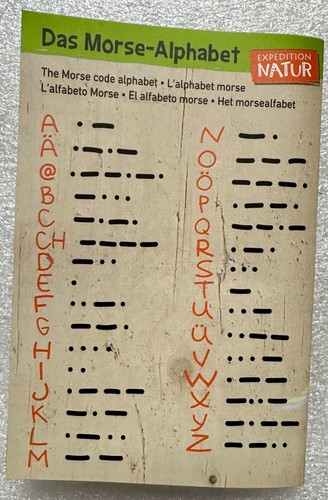 Das Morse-Alphabet
EXPEDITION
NATUR
The Morse code alphabet • L'alphabet morse
L'alfabeto Morse • El alfabeto morse • Het morsealfabet
A
Ä
@
B
C
CH
D
E
F
G
H
I
J
K
L
M
N
O
Ö
P
Q
R
S
T
U
Ü
V
W
X
Y
Z